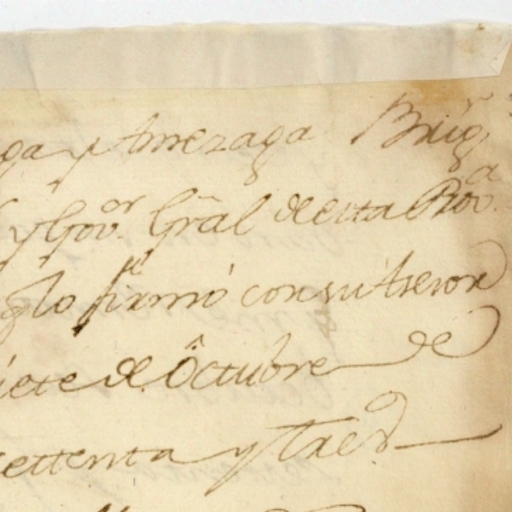 ga y Arrezaga Brig.r
y Gov.or Gral de esta Prov.a
qlo firmó con su Asesor
iete de Octubre de
settenta y tres